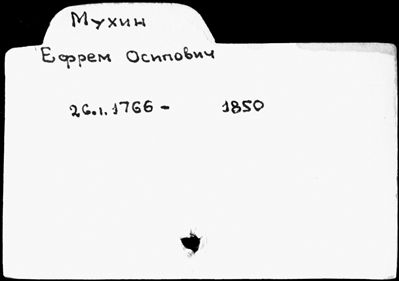 Мухин
Ефрем Осипович
26.1.1766 - 1850